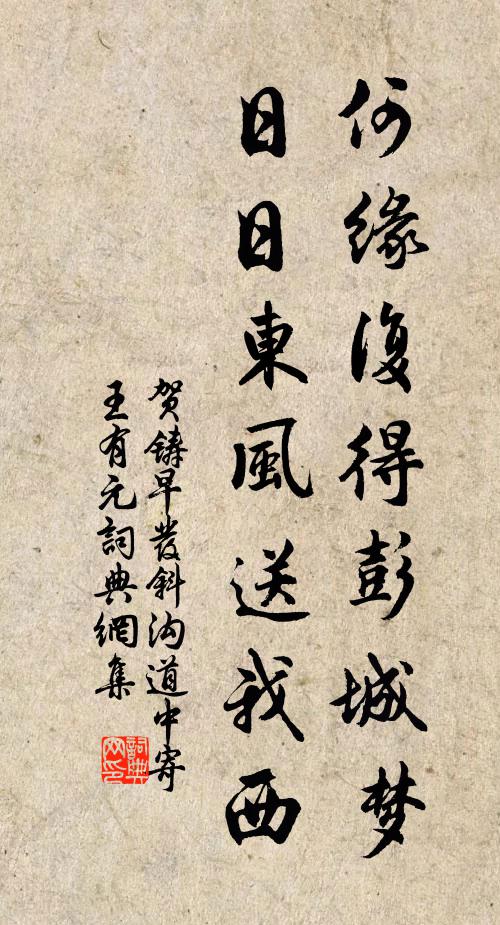 何缘復得彭城梦
日日東風送我西
贺鑄早發斜沟道中寄
王有元詞典網集
詞典
网印